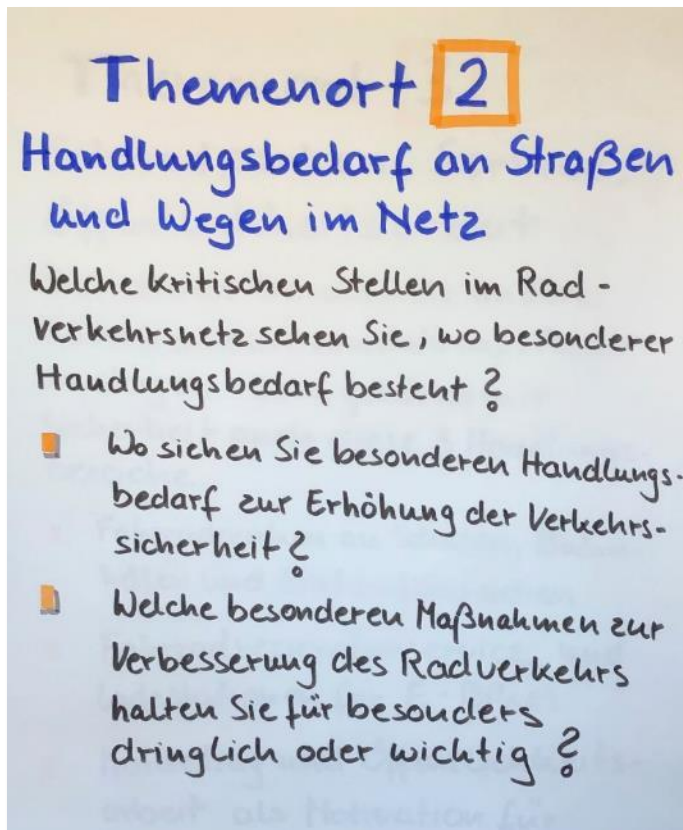 Themenort 2
Handlungsbedarf an Straßen
und Wegen im Netz
Welche kritischen Stellen im Rad-
verkehrsnetz sehen Sie, wo besonderer
Handlungsbedarf besteht?
Wo sichen Sie besonderen Handlungs-
bedarf zur Erhöhung der Verkehrs-
sicherheit?
Welche besonderen Maßnahmen zur
Verbesserung des Radverkehrs
halten Sie für besonders
dringlich oder wichtig?